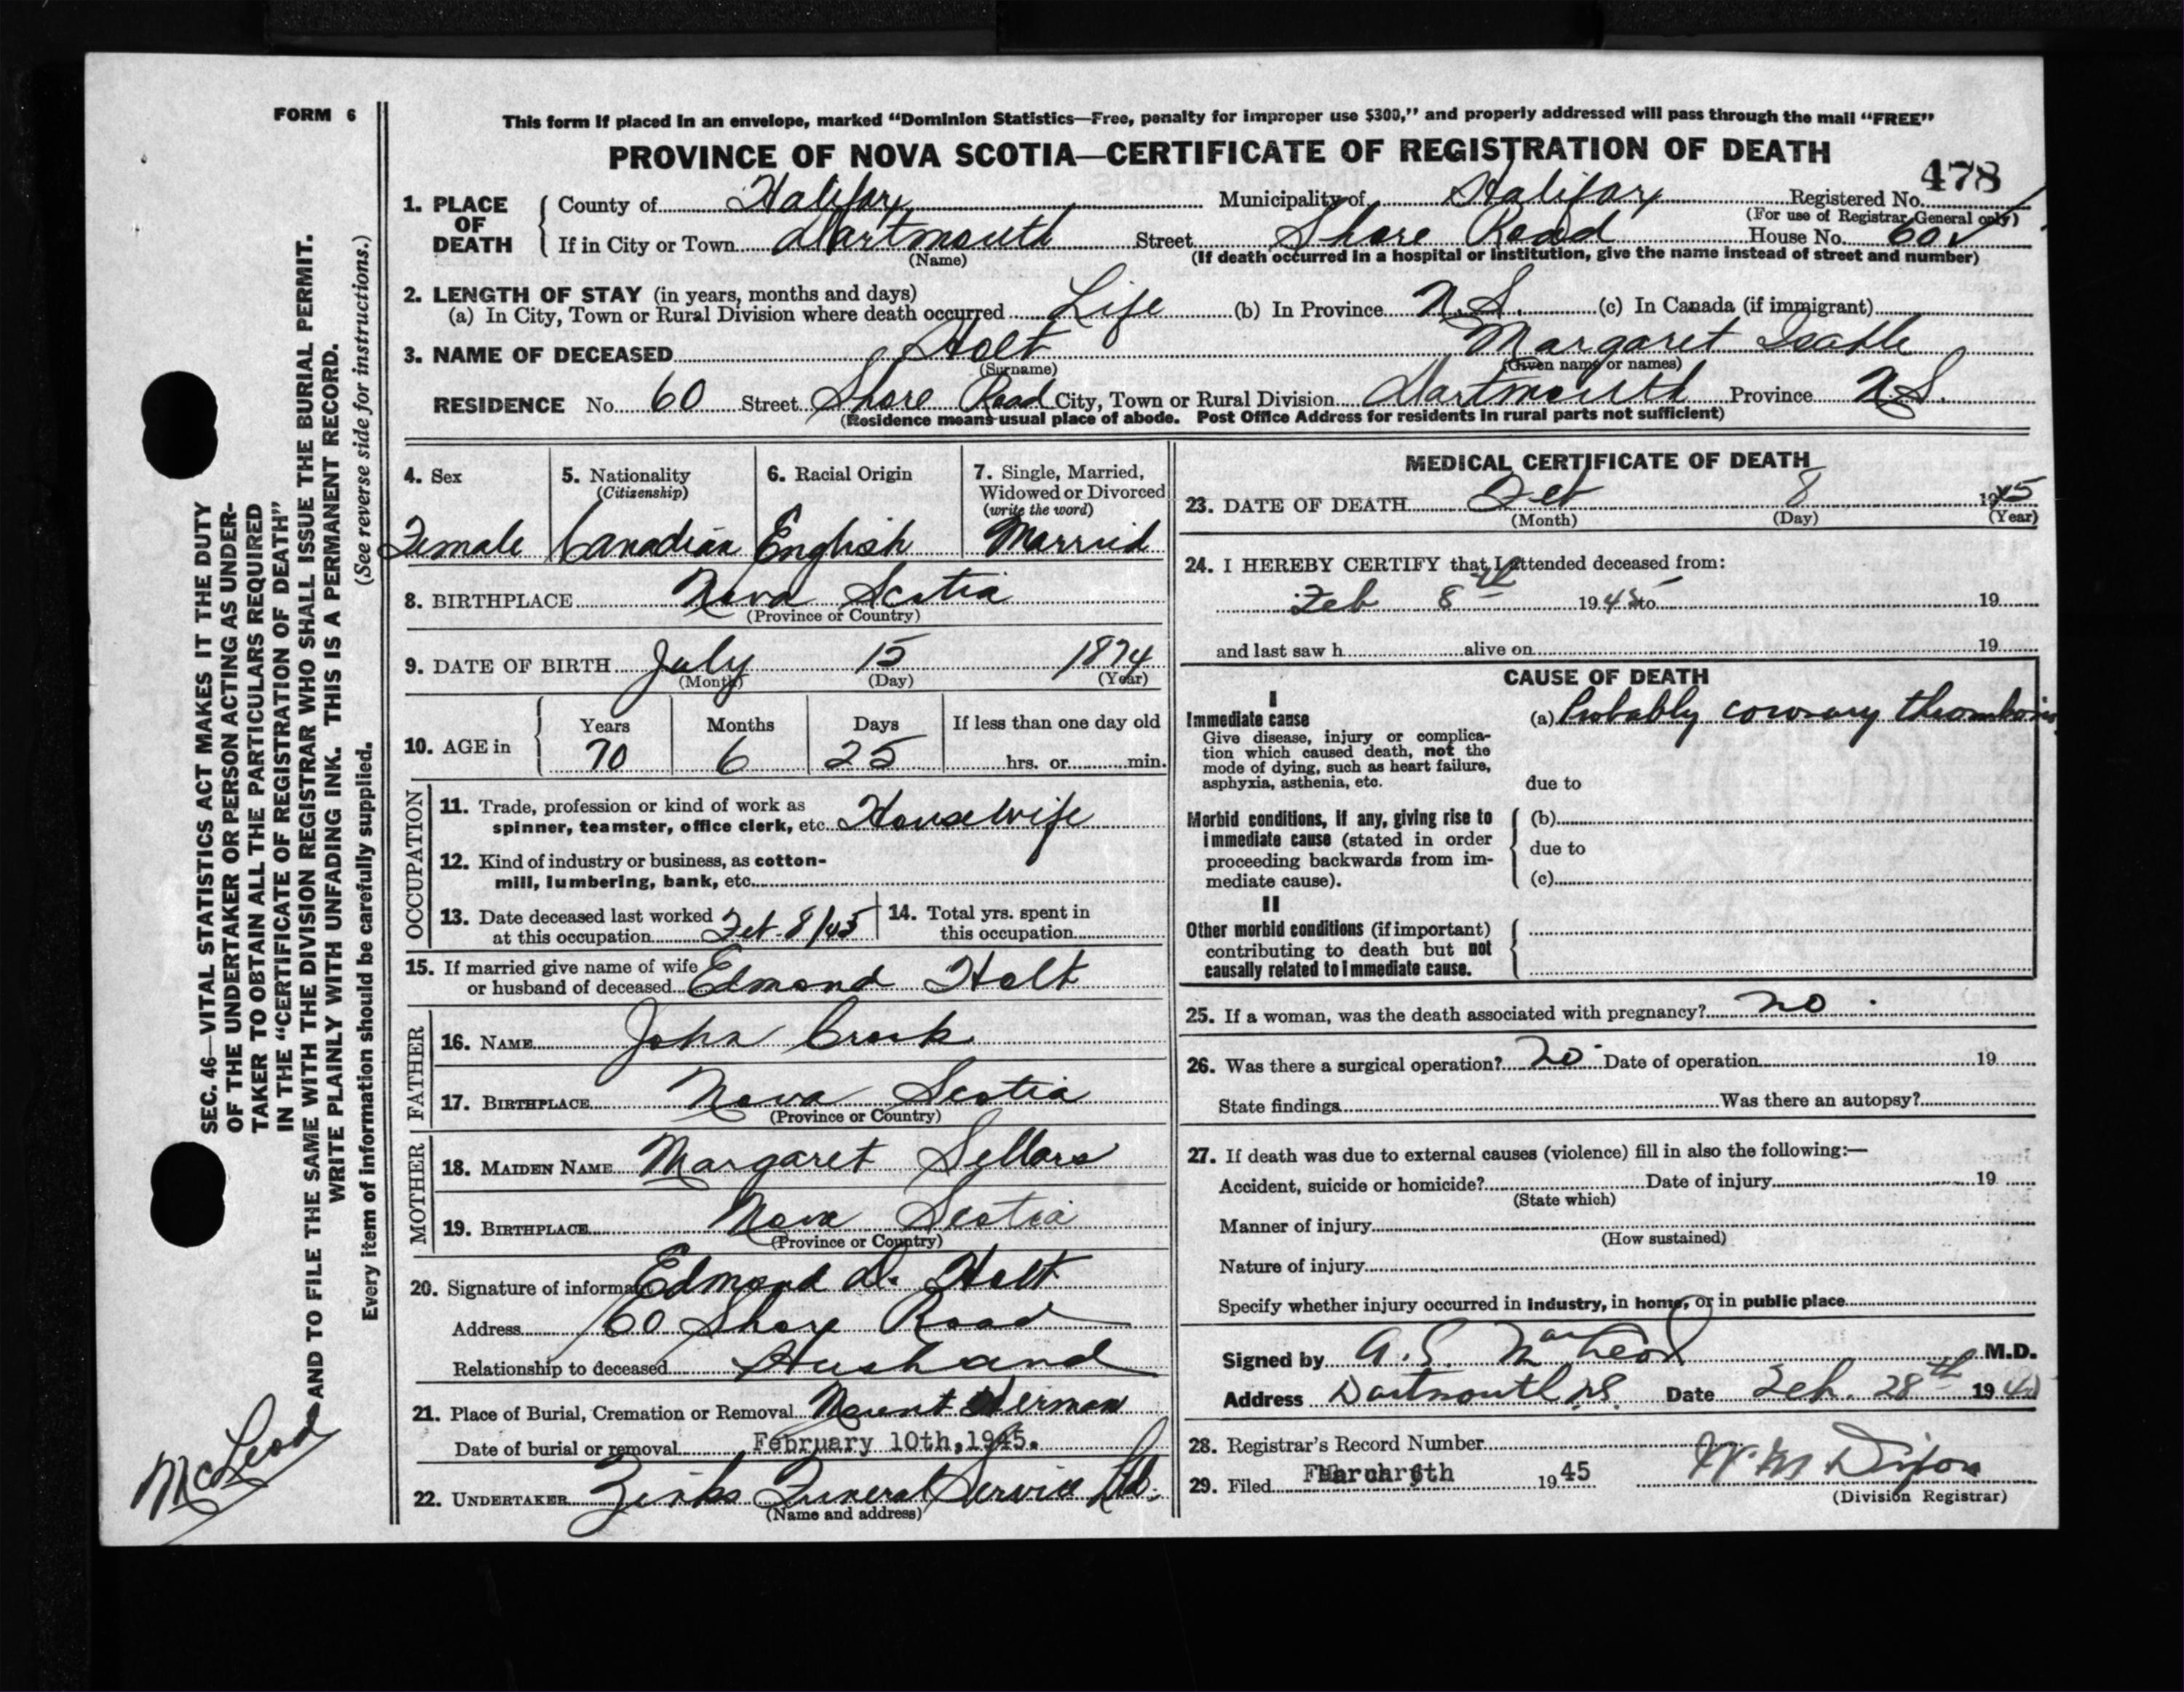 FORM 6
This form if placed in an envelope, marked "Dominion Statistics—Free, penalty for improper use $300," and properly addressed will pass through the mail "FREE"
PROVINCE OF NOVA SCOTIA—CERTIFICATE OF REGISTRATION OF DEATH
478
1. PLACE OF DEATH
County of Halifax Municipality of Halifax Registered No.
(For use of Registrar General only)
If in City or Town Dartmouth Street Shore Road House No. 60
(Name) (If death occurred in a hospital or institution, give the name instead of street and number)
2. LENGTH OF STAY (in years, months and days)
(a) In City, Town or Rural Division where death occurred Life (b) In Province N.S. (c) In Canada (if immigrant)
3. NAME OF DECEASED Holt Margaret Isable
(Surname) (Given name or names)
RESIDENCE No. 60 Street Shore Road City, Town or Rural Division Dartmouth Province N.S.
(Residence means usual place of abode. Post Office Address for residents in rural parts not sufficient)
4. Sex
Female
5. Nationality
(Citizenship)
Canadian
6. Racial Origin
English
7. Single, Married,
Widowed or Divorced
(write the word)
Married
8. BIRTHPLACE Nova Scotia
(Province or Country)
9. DATE OF BIRTH July 15 1874
(Month) (Day) (Year)
10. AGE in
Years Months Days If less than one day old
70 6 25 hrs. or min.
OCCUPATION
11. Trade, profession or kind of work as
spinner, teamster, office clerk, etc. Housewife
12. Kind of industry or business, as cotton-
mill, lumbering, bank, etc.
13. Date deceased last worked
at this occupation Feb. 8/45
14. Total yrs. spent in
this occupation
15. If married give name of wife
or husband of deceased Edmond Holt
FATHER
16. NAME John Crook
17. BIRTHPLACE Nova Scotia
(Province or Country)
MOTHER
18. MAIDEN NAME Margaret Sellars
19. BIRTHPLACE Nova Scotia
(Province or Country)
20. Signature of informant Edmond D. Holt
Address 60 Shore Road
Relationship to deceased Husband
21. Place of Burial, Cremation or Removal Mount Herman
Date of burial or removal February 10th, 1945.
22. UNDERTAKER Zinks Funeral Service Ltd.
(Name and address)
MEDICAL CERTIFICATE OF DEATH
23. DATE OF DEATH Feb 8 1945
(Month) (Day) (Year)
24. I HEREBY CERTIFY that I attended deceased from:
Feb 8th 1945 to 19
and last saw h alive on 19
CAUSE OF DEATH
I
Immediate cause
Give disease, injury or complica-
tion which caused death, not the
mode of dying, such as heart failure,
asphyxia, asthenia, etc.
(a) Probably coronary thrombosis
due to
Morbid conditions, if any, giving rise to
immediate cause (stated in order
proceeding backwards from im-
mediate cause).
(b)
due to
(c)
II
Other morbid conditions (if important)
contributing to death but not
causally related to immediate cause.
25. If a woman, was the death associated with pregnancy? no
26. Was there a surgical operation? no Date of operation 19
State findings Was there an autopsy?
27. If death was due to external causes (violence) fill in also the following:—
Accident, suicide or homicide? Date of injury 19
(State which)
Manner of injury
(How sustained)
Nature of injury
Specify whether injury occurred in industry, in home, or in public place
Signed by A. S. MacLeod M.D.
Address Dartmouth N.S. Date Feb. 28th 19
28. Registrar's Record Number
29. Filed 1945 W. M. Dixon
(Division Registrar)
SEC. 46—VITAL STATISTICS ACT MAKES IT THE DUTY
OF THE UNDERTAKER OR PERSON ACTING AS UNDER-
TAKER TO OBTAIN ALL THE PARTICULARS REQUIRED
IN THE "CERTIFICATE OF REGISTRATION OF DEATH"
AND TO FILE THE SAME WITH THE DIVISION REGISTRAR WHO SHALL ISSUE THE BURIAL PERMIT.
WRITE PLAINLY WITH UNFADING INK. THIS IS A PERMANENT RECORD.
Every item of information should be carefully supplied. (See reverse side for instructions.)
McLeod